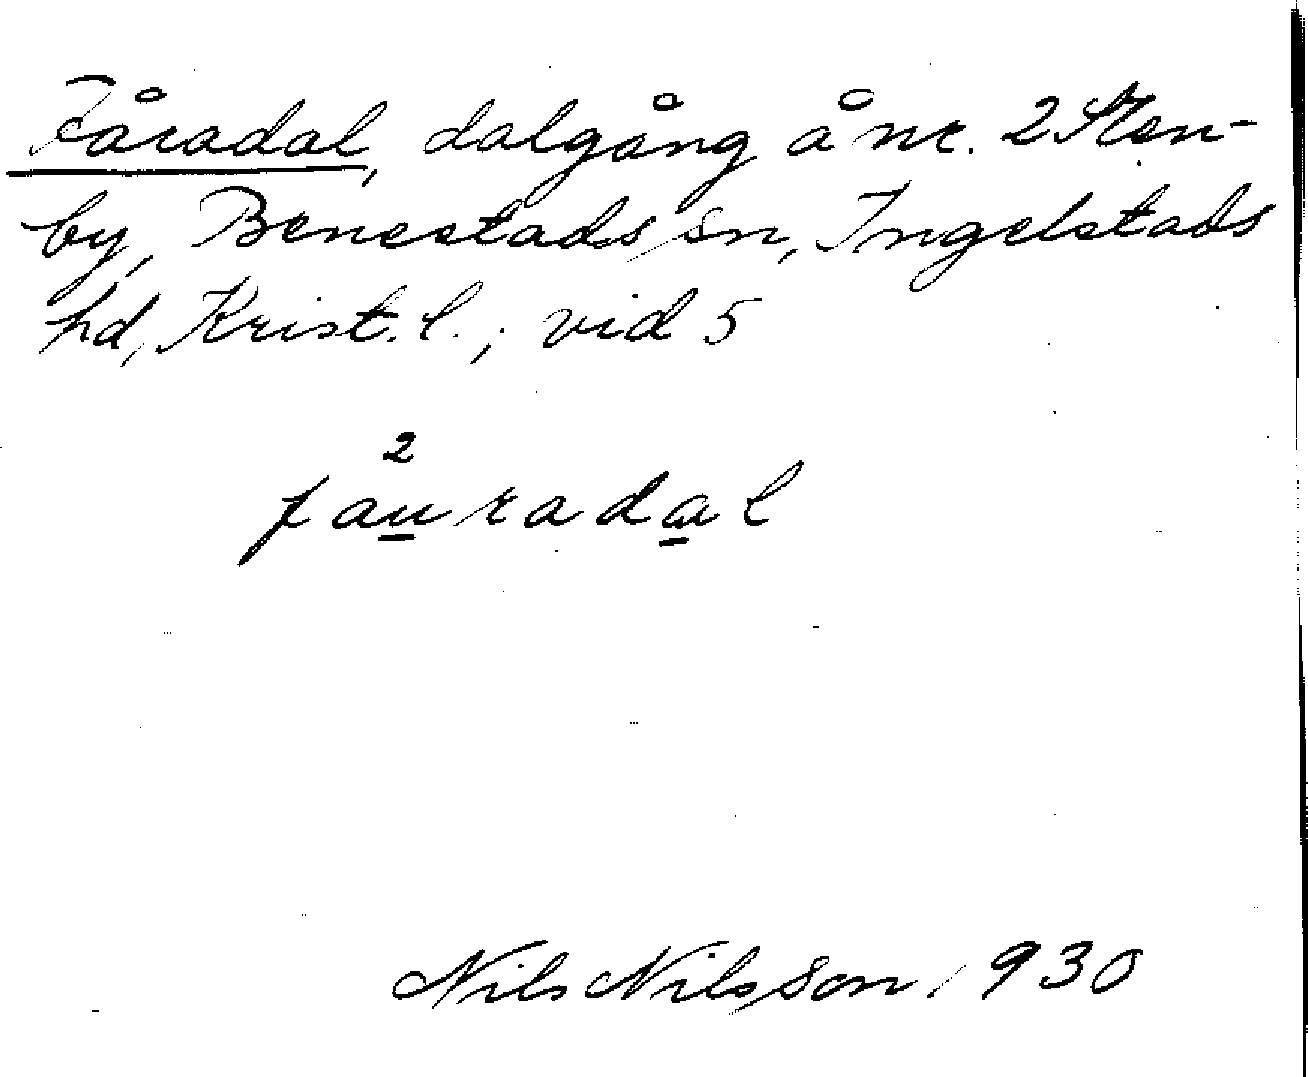 Fåradal, dalgång å nr. 2 Sten-
by, Benestads sn, Ingelstads
hd, Krist. l.; vid 5
2
fauradal
Nils Nilsson, 930